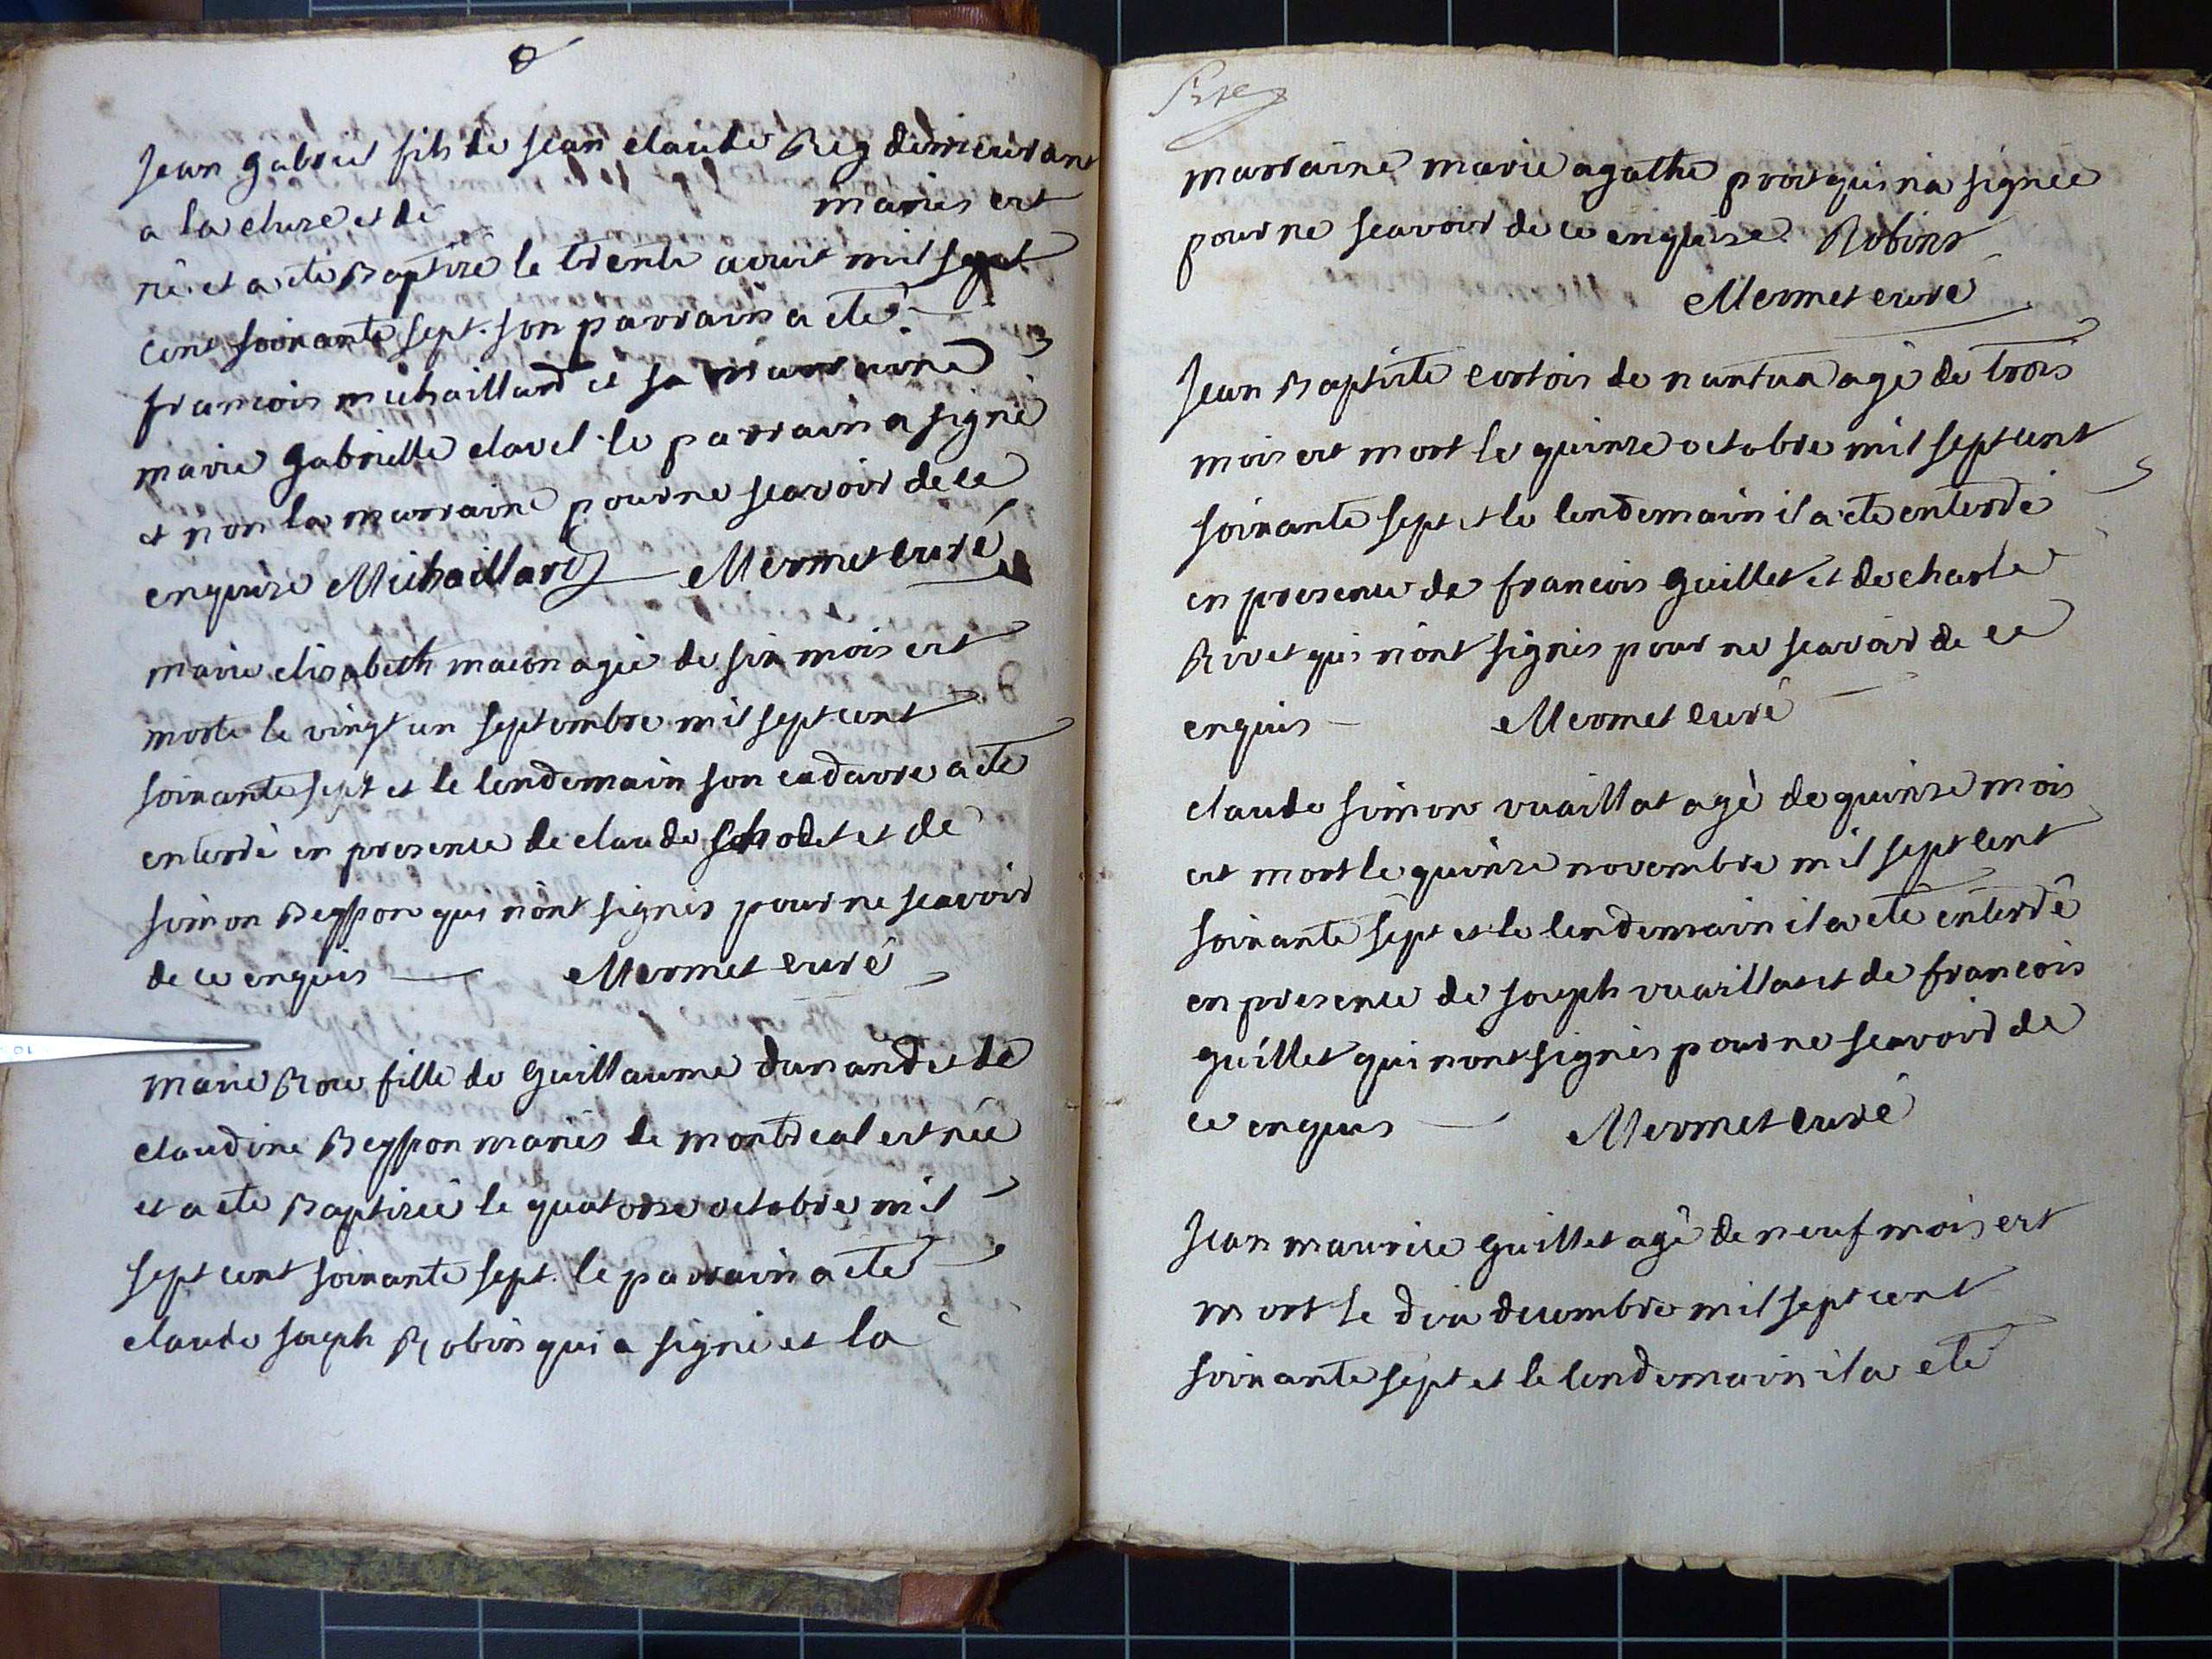 Jean gabriel fils de jean claude Reg demeurant
a la cluse et de mariés est
né et a eté Baptisé le trente aout mil sept
cent soixante sept. son parrain a eté
francois michaillard et sa marraine
marie gabrielle clavel. le parrain a signé
et non la marraine pour ne scavoir de ce
enquise Michaillard Mermet curé
marie elisabeth macon agée de six mois est
morte le vingt un septembre mil sept cent
soixante sept et le lendemain son cadavre a eté
enterré en presence de claude et de
simon Beysson qui n'ont signés pour ne scavoir
de ce enquis Mermet curé
marie Rose fille de guillaume dunand et de
claudine Beysson mariés de montreal est née
et a eté Baptisée le quatorse octobre mil
sept cent soixante sept. le parrain a eté
claude joseph Robin qui a signé et la
marraine marie agathe prost qui n'a signée
pour ne scavoir de ce enquise Robins
Mermet curé
Jean Baptiste cortois de nantua agé de trois
mois est mort le quinse octobre mil sept cent
soixante sept et le lendemain il a eté enterré
en presence de francois guillet et de charle
Rivet qui n'ont signés pour ne scavoir de ce
enquis Mermet curé
claude simon vuaillat agé de quinse mois
est mort le quinse novembre mil sept cent
soixante sept et le lendemain il a eté enterré
en presence de joseph vuaillat et de francois
guillet qui n'ont signés pour ne scavoir de
ce enquis Mermet curé
Jean maurice guillet agé de neuf mois est
mort le dix decembre mil sept cent
soixante sept et le lendemain il a eté